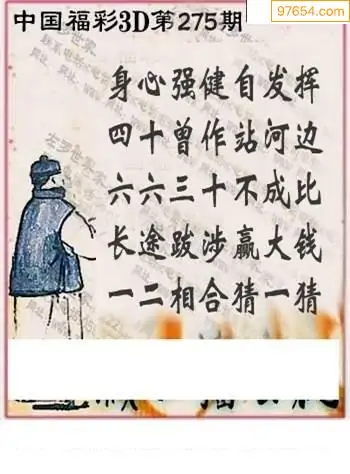 中国福彩3D第275期
97654.com
身心强健自发挥
四十曾作站河边
六六三十不成比
长途跋涉赢大钱
一二相合猜一猜